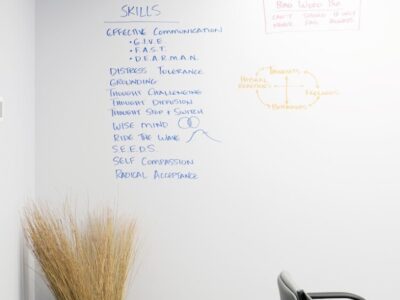 SKILLS
EFFECTIVE COMMUNICATION
• G.I.V.E.
• F.A.S.T.
• D.E.A.R.M.A.N.
DISTRESS TOLERANCE
GROUNDING
THOUGHT CHALLENGING
THOUGHT DIFFUSION
THOUGHT STOP & SWITCH
WISE MIND
RIDE THE WAVE
S.E.E.D.S.
SELF COMPASSION
RADICAL ACCEPTANCE
BAD WORD
CAN'T SHOULD IF ONLY
NEVER FAIL ALWAYS
THOUGHTS
PHYSICAL
REACTIONS
FEELINGS
BEHAVIORS